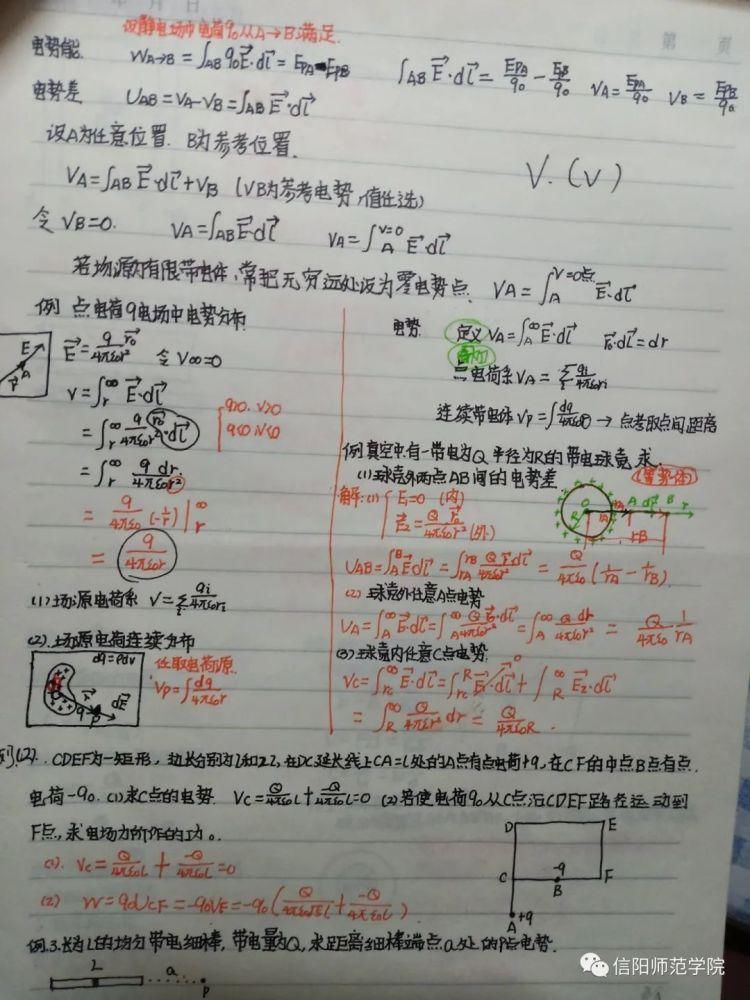 年 月 日
第 页
设静电场中电荷q₀从A→B满足.
电势能. W_A→B = ∫_AB q₀E⃗·dl⃗ = E_PA - E_PB ∫_AB E⃗·dl⃗ = E_PA/q₀ - E_PB/q₀ V_A = E_PA/q₀ V_B = E_PB/q₀
电势差 U_AB = V_A - V_B = ∫_AB E⃗·dl⃗
设A为任意位置. B为参考位置.
V_A = ∫_AB E⃗·dl⃗ + V_B (V_B为参考电势,值任选)
V.(V)
令 V_B=0. V_A = ∫_AB E⃗·dl⃗ V_A = ∫_A^V=0 E⃗·dl⃗
若场源为有限带电体,常把无穷远处设为零电势点. V_A = ∫_A^V=0点 E⃗·dl⃗
例 点电荷q电场中电势分布
E⃗ = q/4πε₀r² r⃗₀ 令 V∞=0
V = ∫_r^∞ E⃗·dl⃗
= ∫_r^∞ q/4πε₀r² r⃗₀·dl⃗
q>0. V>0
q<0 V<0
= ∫_r^∞ q dr/4πε₀r²
= q/4πε₀ (-1/r)|_r^∞
= q/4πε₀r
(1)场源电荷系 V = Σ_i q_i/4πε₀r_i
(2).场源电荷连续分布
dq=ρdv
任取电荷源.
V_P = ∫ dq/4πε₀r
E
A
r⃗
r⃗
dE⃗
电势. 定义 V_A = ∫_A^∞ E⃗·dl⃗ r⃗₀·dl⃗ = dr
点电荷系 V_A = Σ_i q_i/4πε₀r_i
连续带电体 V_P = ∫ dq/4πε₀r → 点与取点间距离
例 真空中有一带电为Q 半径为R的带电球壳. 求.
(1)球壳外两点AB间的电势差
(等势体)
解:(1) E₁=0 (内)
E⃗₂ = Q/4πε₀r² r⃗₀ (外)
O R r_A A dr⃗ B r
r_B
U_AB = ∫_A^B E⃗·dl⃗ = ∫_rA^rB Q r⃗₀·dl⃗/4πε₀r² = Q/4πε₀ (1/r_A - 1/r_B)
(2) 球壳外任意A点电势
V_A = ∫_A^∞ E⃗·dl⃗ = ∫_A^∞ Q r⃗₀·dl⃗/4πε₀r² = ∫_A^∞ Q dr/4πε₀r² = Q/4πε₀ 1/r_A
(3)球壳内任意C点电势
V_C = ∫_rc^∞ E⃗·dl⃗ = ∫_rc^R E⃗₁·dl⃗ + ∫_R^∞ E₂·dl⃗
0
= ∫_R^∞ Q/4πε₀r² dr = Q/4πε₀R.
例(2). CDEF为一矩形, 边长分别为l和2l,在DC延长线上CA=L处的A点有点电荷+q,在CF的中点B点有点
电荷-q₀. (1)求C点的电势. V_C = Q/4πε₀L + -Q/4πε₀L = 0 (2)若使电荷q₀从C点沿CDEF路径运动到
F点,求电场力所作的功。
D E
(1). V_C = Q/4πε₀L + -Q/4πε₀L = 0
C -q F
B
(2) W = q₀U_CF = -q₀V_F = -q₀(Q/4πε₀√5l + -Q/4πε₀l)
A +q
例.3.长为L的均匀带电细棒, 带电量为Q,求距离细棒端点a处的P点电势.
L a P
信阳师范学院